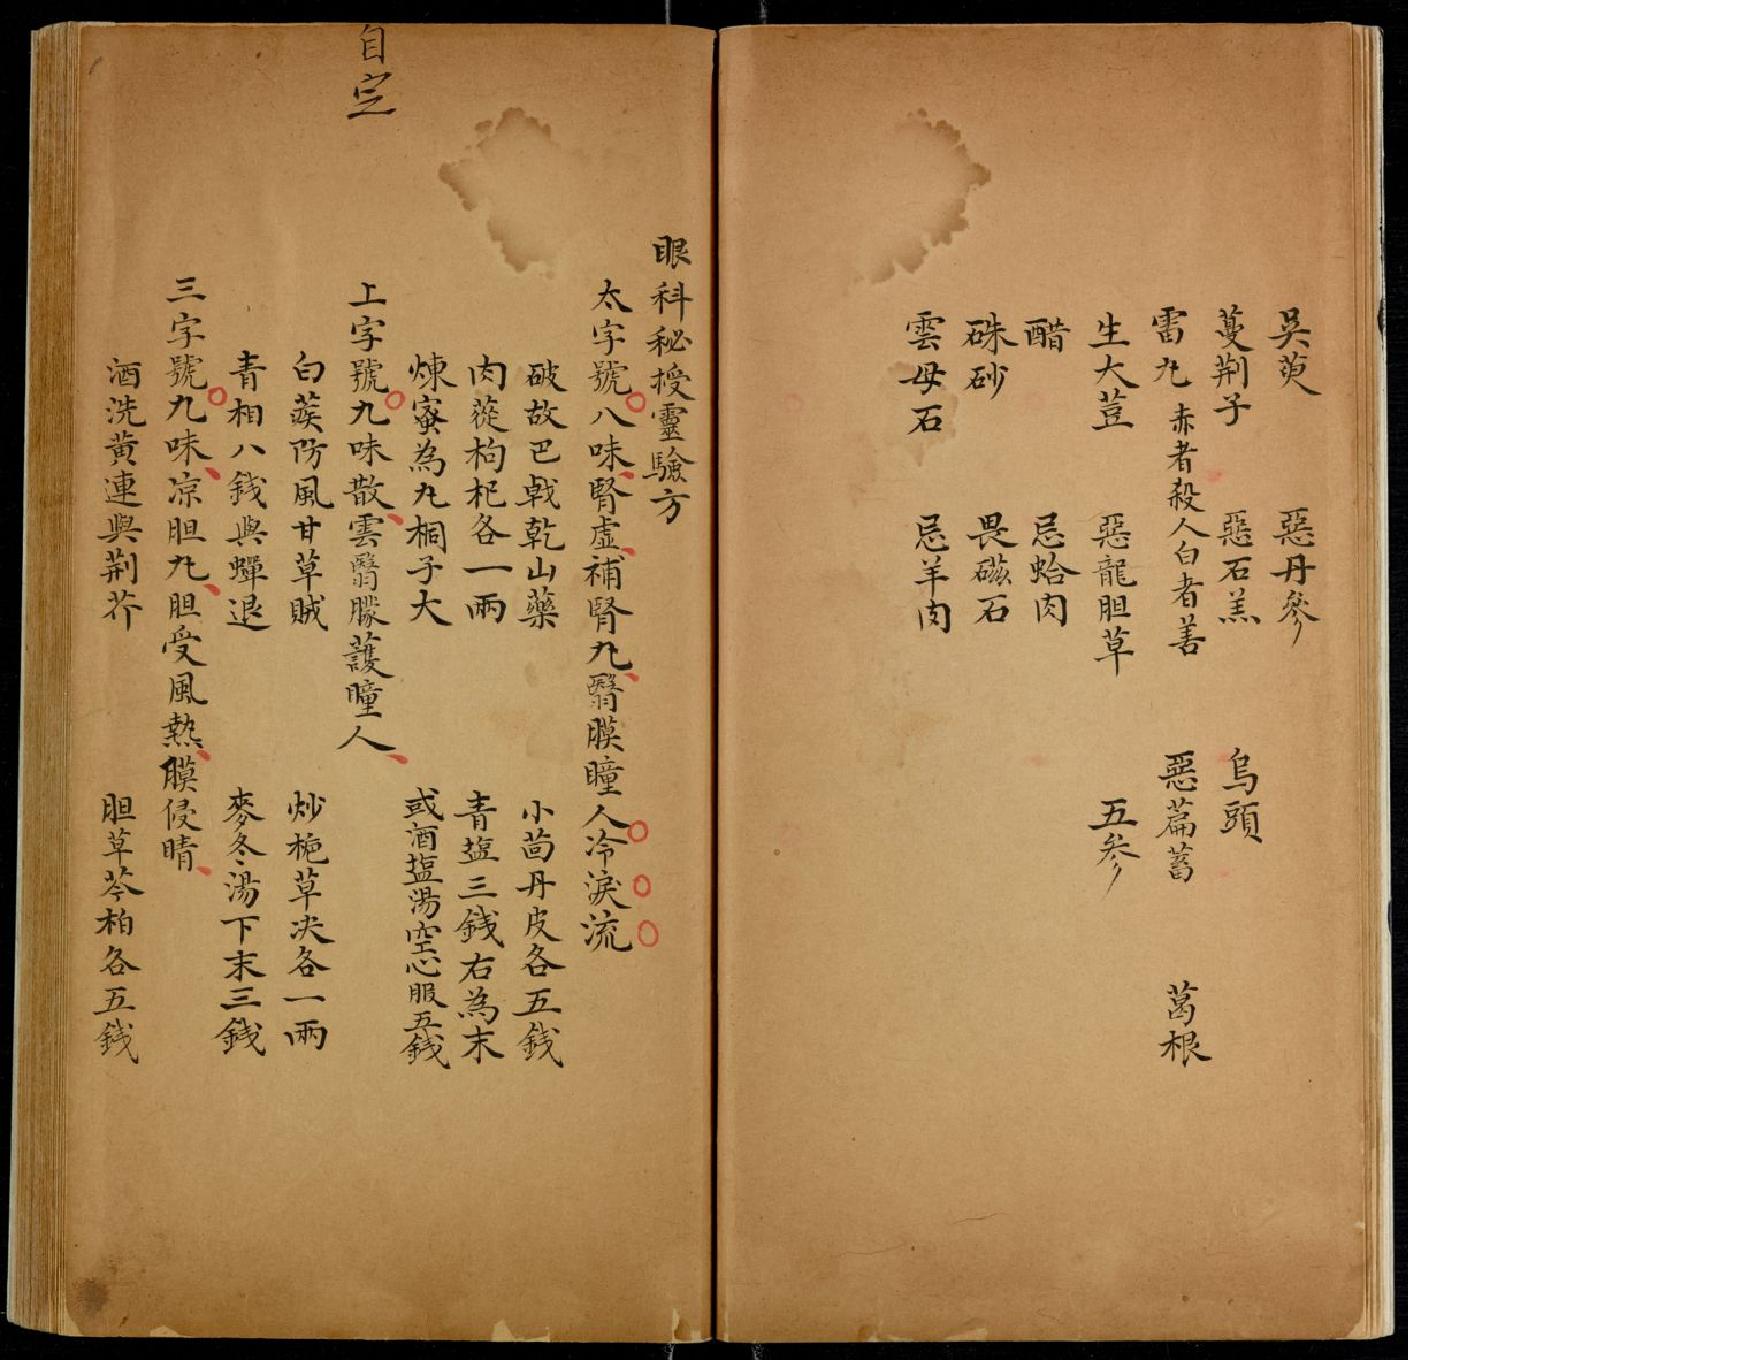 吳萸 惡丹參
蔓荆子 惡石羔 烏頭
雷九 赤者殺人白者善 惡萹蓄 葛根
生大荳 惡龍胆草 五參
醋 忌蛤肉
硃砂 畏磁石
雲母石 忌羊肉
眼科秘授靈驗方
太字號八味腎虛補腎九翳膜瞳人冷淚流
破故巴戟乾山藥 小茴丹皮各五錢
肉蓯枸杞各一兩 青塩三錢右為末
煉蜜為九桐子大 或酒塩湯空心服五錢
自定
上字號九味散雲翳朦護瞳人
白蒺防風甘草賊 炒梔草决各一兩
青相八錢與蟬退 麥冬湯下末三錢
三字號九味凉胆九胆受風熱膜侵睛
酒洗黃連與荆芥 胆草芩柏各五錢